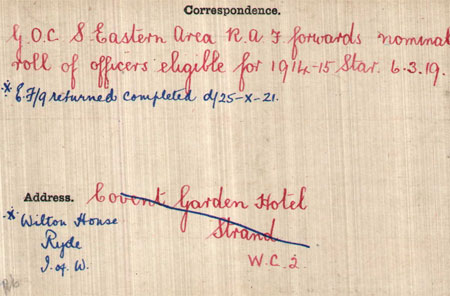 Correspondence.
G.O.C S Eastern Area R.A.F forwards nominal
roll of officers eligible for 1914-15 Star. 6.3.19.
* E.F/9 returned completed d/25-X-21.
Address. Covent Garden Hotel
Strand
W.C.2
* Wilton House
Ryde
I. of W.